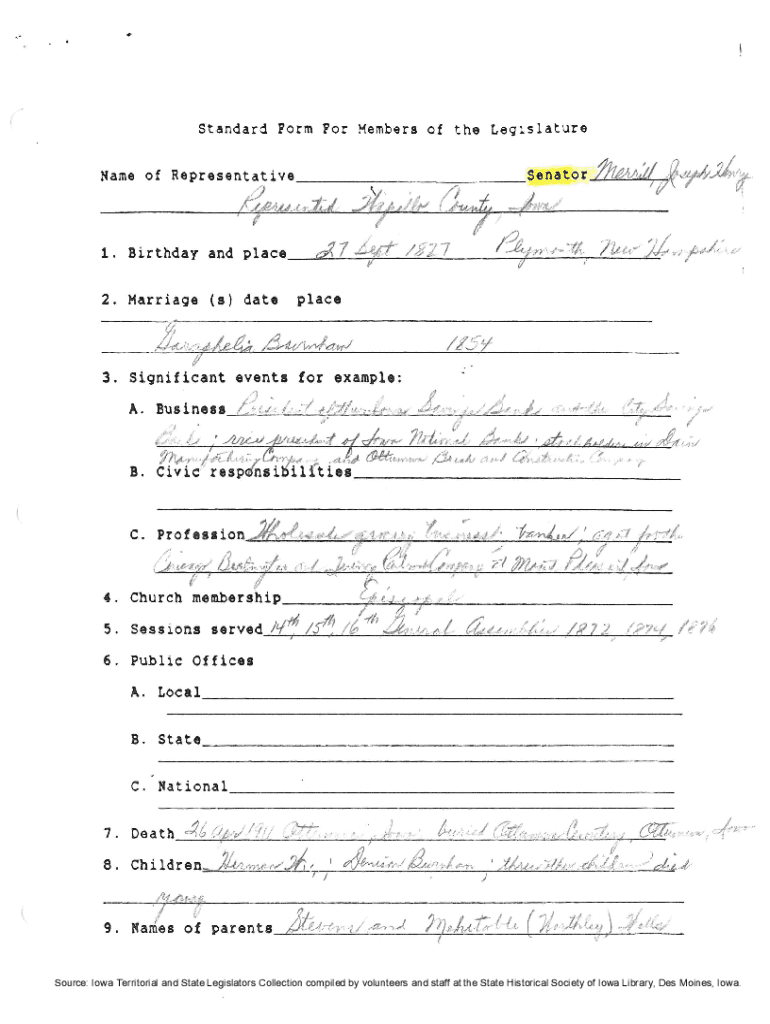 Standard Form For Members of the Legislature
Name of Representative Senator Merrill, Joseph Henry
Represented Wapello County, Iowa
1. Birthday and place 27 Sept 1827 Plymouth, New Hampshire
2. Marriage (s) date place
Burnham 1854
3. Significant events for example:
A. Business President of the Iowa Savings Bank and the City Savings
Bank; vice president of Iowa National Bank; stockholder in Dain
Manufacturing Company and Ottumwa Brick and Construction Company
B. Civic responsibilities
C. Profession Wholesale grocery business; banker; agent for the
Chicago, Burlington and Quincy Company at Mount Pleasant, Iowa
4. Church membership Episcopal
5. Sessions served 14th, 15th, 16th General Assemblies 1872, 1874, 1876
6. Public Offices
A. Local
B. State
C. National
7. Death 26 Apr 1911 Ottumwa, Iowa buried Ottumwa Cemetery, Ottumwa, Iowa
8. Children Herman W.; Burnham; three other children died
young
9. Names of parents Stevens and Mehitable (Worthley) Wells
Source: Iowa Territorial and State Legislators Collection compiled by volunteers and staff at the State Historical Society of Iowa Library, Des Moines, Iowa.